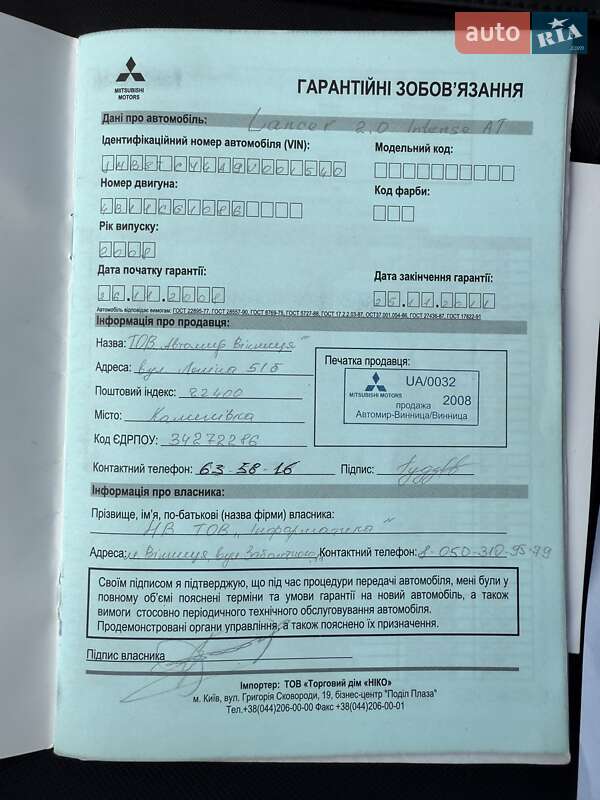 auto RIA .com
MITSUBISHI MOTORS
ГАРАНТІЙНІ ЗОБОВ’ЯЗАННЯ
Дані про автомобіль: Lancer 2.0 Intense AT
Ідентифікаційний номер автомобіля (VIN): Модельний код:
Номер двигуна: Код фарби:
Рік випуску:
2008
Дата початку гарантії: Дата закінчення гарантії:
26.11.2008 25.11.2011
Інформація про продавця:
Назва: ТОВ „Автомир Вінниця"
Адреса: вул Леніна 51б
Поштовий індекс: 22400
Місто: Калинівка
Код ЄДРПОУ: 34272286
Контактний телефон: 63-58-16 Підпис:
Печатка продавця:
MITSUBISHI MOTORS UA/0032
продажа 2008
Автомир-Винница/Винница
Інформація про власника:
Прізвище, ім’я, по-батькові (назва фірми) власника:
ТОВ „Інформатика"
Адреса: м Вінниця, вул Контактний телефон: 8-050-310-95-79
Своїм підписом я підтверджую, що під час процедури передачі автомобіля, мені були у
повному об’ємі пояснені терміни та умови гарантії на новий автомобіль, а також
вимоги стосовно періодичного технічного обслуговування автомобіля.
Продемонстровані органи управління, а також пояснено їх призначення.
Підпис власника
Імпортер: ТОВ «Торговий дім «НІКО»
м. Київ, вул. Григорія Сковороди, 19, бізнес-центр "Поділ Плаза"
Тел.+38(044)206-00-00 Факс +38(044)206-00-01